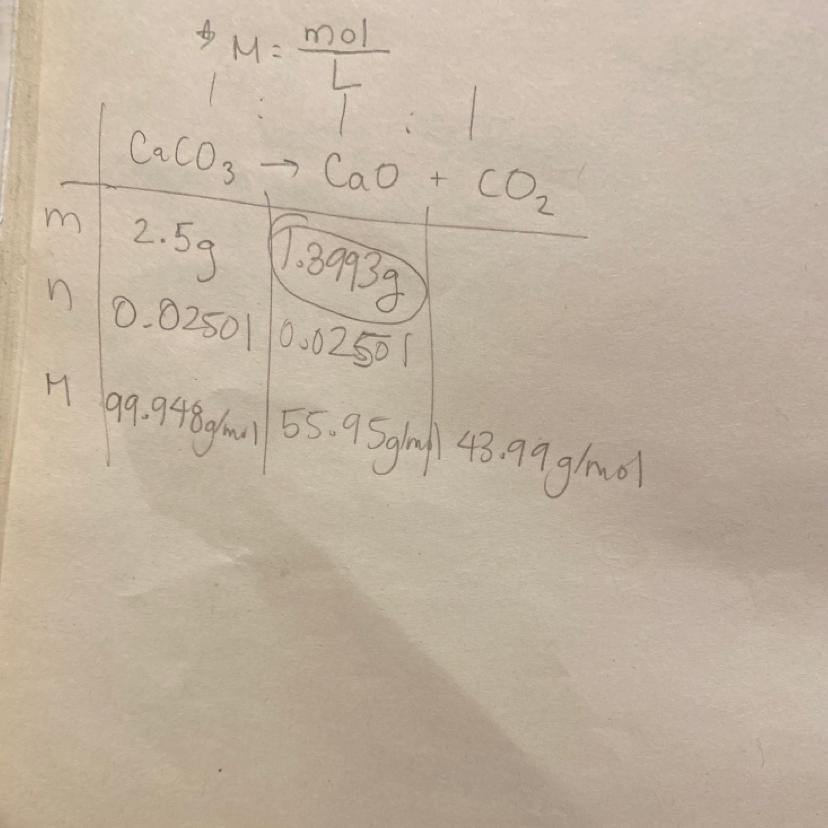 * M = mol
L
1 : 1 : 1
CaCO₃ → CaO + CO₂
m 2.5g 1.3993g
n 0.02501 0.02501
M 99.948g/mol 55.95g/mol 43.99g/mol